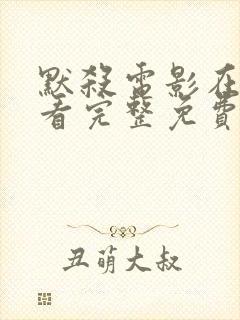 默殺電影在
看完整免費
丑萌大叔